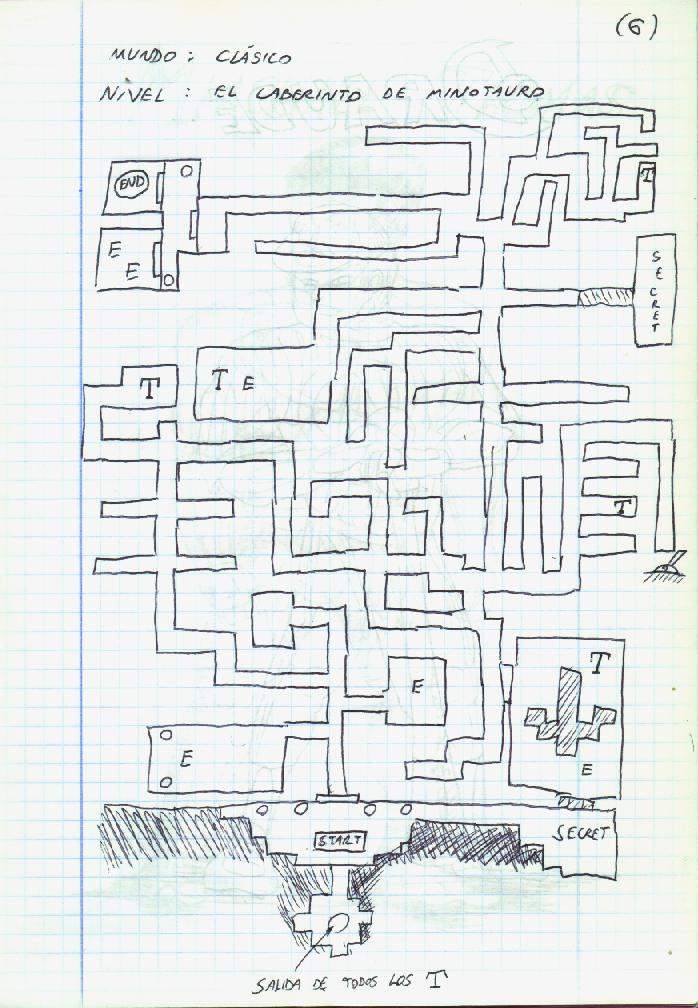 (6)
MUNDO : CLÁSICO
NIVEL : EL LABERINTO DE MINOTAURO
END
T
E
E
SECRET
T
T E
T
E
T
E
E
SECRET
START
SALIDA DE TODOS LOS T